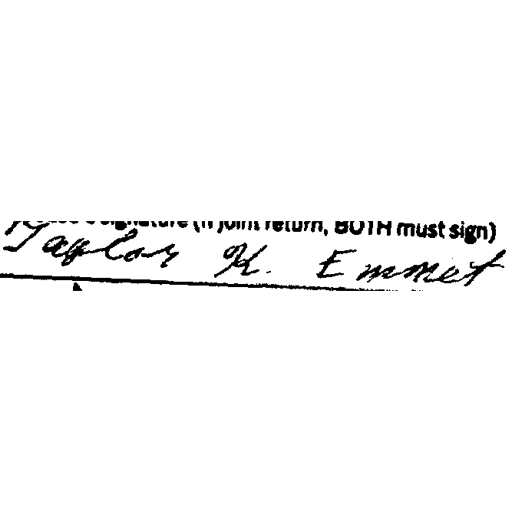 signature (If joint return, BOTH must sign)
Taylor K. Emmet